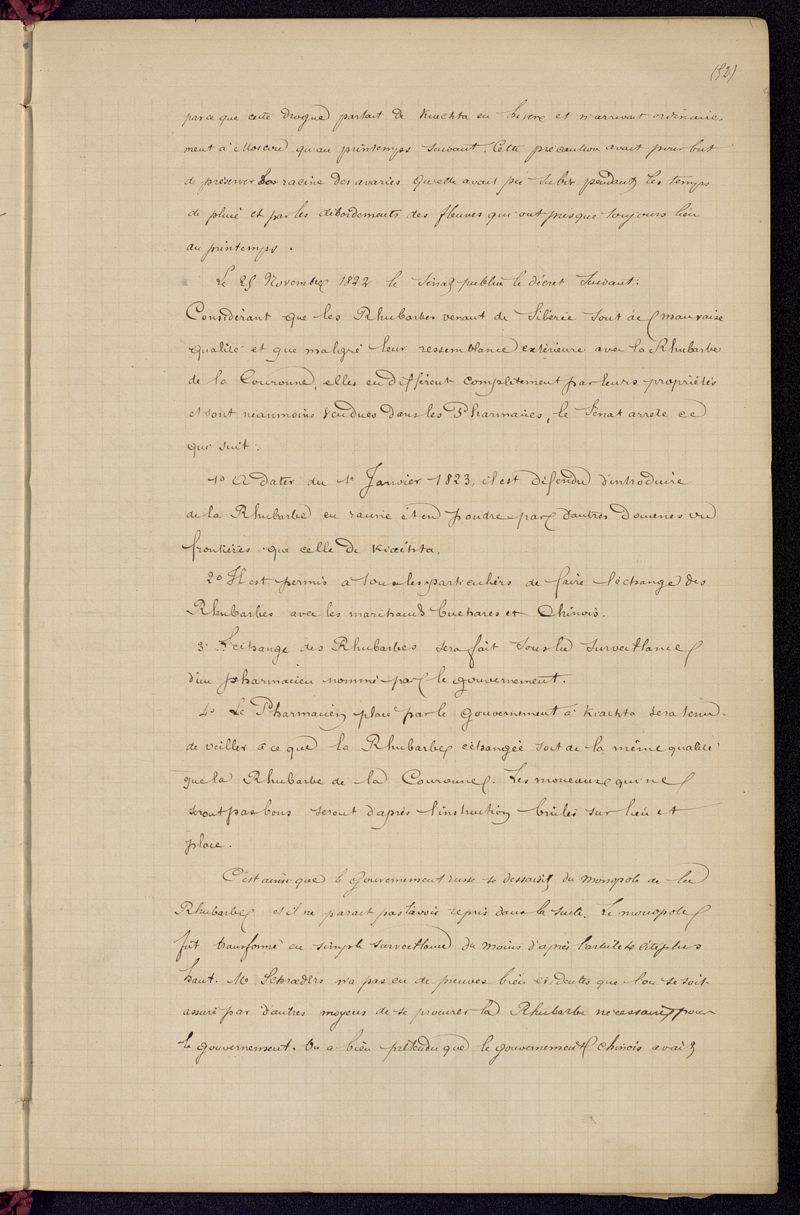 (52)
parce que cette drogue partait de Kiachta en hiver et n'arrivait ordinaire-
ment à Moscou qu'au printemps suivant. Cette précaution avait pour but
de préserver la racine des avaries qu'elle avait pu subir pendant les temps
de pluie et par les débordements des fleuves qui ont presque toujours lieu
au printemps.
Le 25 Novembre 1822 le Sénat publia le décret suivant:
Considérant que les Rhubarbes venant de Sibérie sont de mauvaise
qualité et que malgré leur ressemblance extérieure avec la Rhubarbe
de la Couronne, elles en diffèrent complètement par leurs propriétés
et sont néanmoins vendues dans les Pharmacies, le Sénat arrête ce
que suit:
1° A dater du 1er Janvier 1823, il est défendu d'introduire
de la Rhubarbe en racine et en poudre par d'autres Douanes ou
frontières que celle de Kiachta.
2° Il est permis à tous les particuliers de faire l'échange des
Rhubarbes avec les marchands Buchares et Chinois.
3° L'échange des Rhubarbes sera fait sous la surveillance
d'un pharmacien nommé par le gouvernement.
4° Le Pharmacien placé par le gouvernement à Kiachta sera tenu
de veiller à ce que la Rhubarbe échangée soit de la même qualité
que la Rhubarbe de la Couronne. Les morceaux qui ne
seront pas bons seront d'après l'instruction brûlés sur lieu et
place.
C'est ainsi que le gouvernement russe se dessaisit du monopole de la
Rhubarbe et il ne parait pas l'avoir repris dans la suite. Le monopole
fut transformé en simple surveillance du moins d'après l'article 4 cité plus
haut. Mr Schrœders n'a pas eu de preuves bien évidentes que l'on se soit
assuré par d'autres moyens de se procurer la Rhubarbe nécessaire pour
le gouvernement. On a bien prétendu que le gouvernement chinois avait